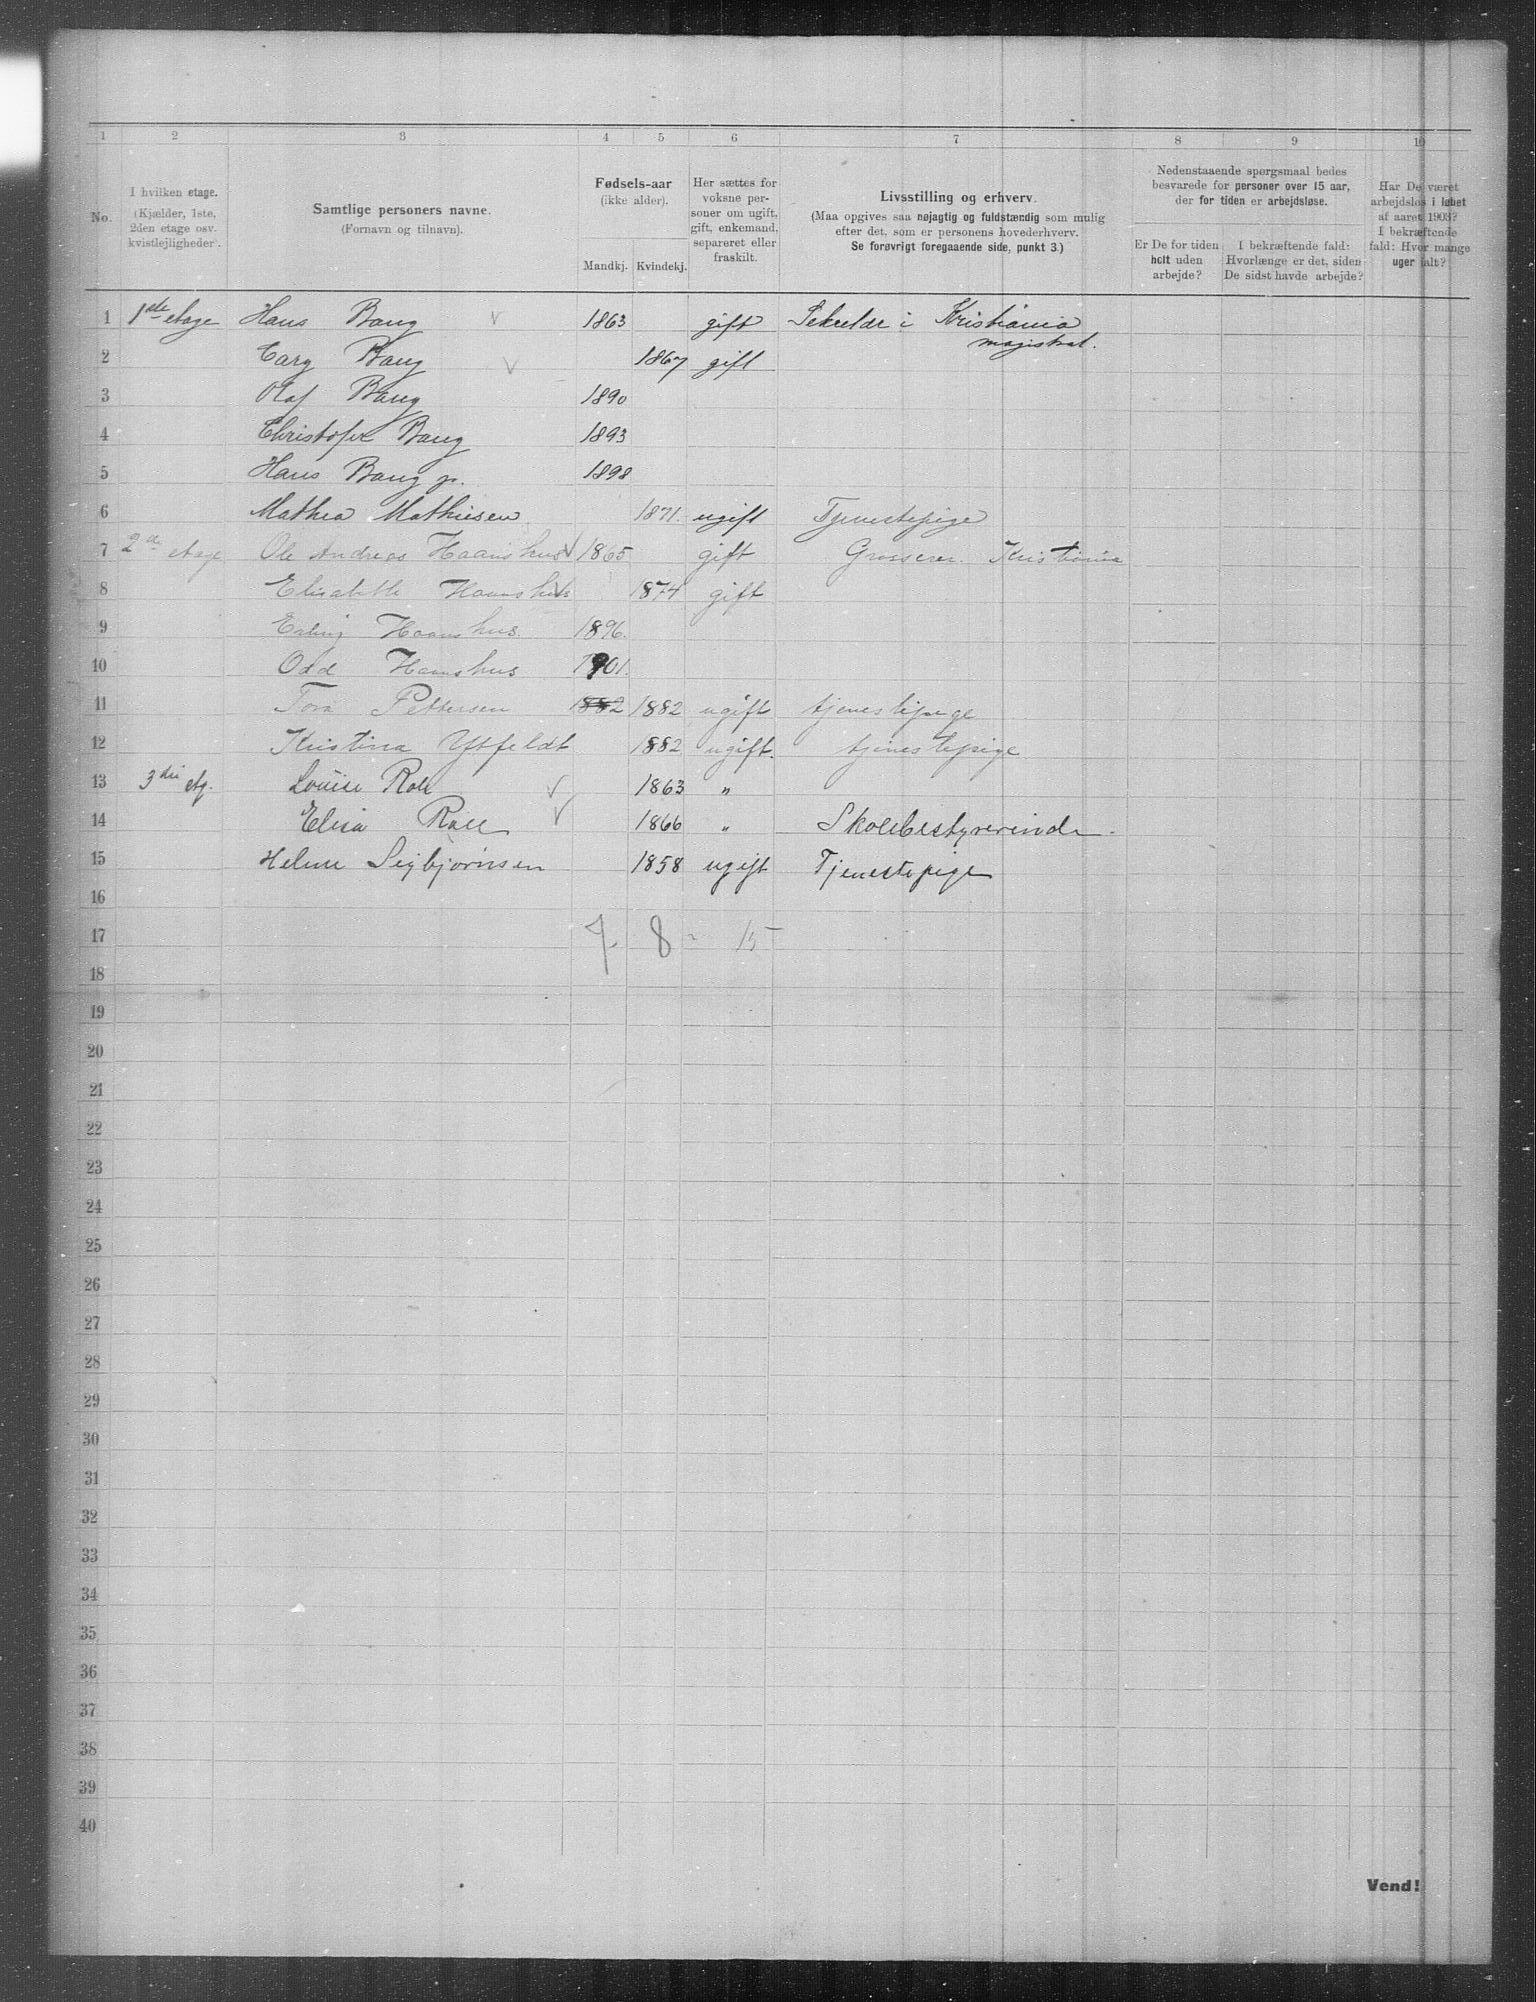 1 2 3 4 5 6 7 8 9 10
No.
I hvilken etage.
(Kjælder, 1ste,
2den etage osv.
kvistlejligheder).
Samtlige personers navne.
(Fornavn og tilnavn).
Fødsels-aar
(ikke alder).
Mandkj. Kvindekj.
Her sættes for
voksne per-
soner om ugift,
gift, enkemand,
separeret eller
fraskilt.
Livsstilling og erhverv.
(Maa opgives saa nøjagtig og fuldstændig som mulig
efter det, som er personens hovederhverv.
Se forøvrigt foregaaende side, punkt 3.)
Nedenstaaende spørgsmaal bedes
besvarede for personer over 15 aar,
der for tiden er arbejdsløse.
Er De for tiden
helt uden
arbejde?
I bekræftende fald:
Hvorlænge er det, siden
De sidst havde arbejde?
Har De været
arbejdsløs i løbet
af aaret 1903?
I bekræftende
fald: Hvor mange
uger ialt?
1 1ste etage Hans Bang 1863 gift i Kristiania
magistrat.
2 Bang 1867 gift
3 Olaf Bang 1890
4 Christofer Bang 1893
5 Hans Bang jr. 1898
6 Mathea Mathiesen 1871. ugift Tjenestepige
7 2de etage Ole Andreas Haanshus 1865 gift Grosserer. Kristiania
8 Elisabeth Haanshus 1874 gift
9 Erling Haanshus. 1896.
10 Odd Haanshus 1901.
11 Tora Pettersen 1882 1882 ugift tjenestepige
12 Kristina Ytfeldt 1882 ugift. tjenestepige
13 3die etg. Louise Roll 1863 "
14 Elisa Roll 1866 " Skolebestyrerinde.
15 Helene Sigbjørnsen 1858 ugift Tjenestepige
16
17 7. 8 - 15
18
19
20
21
22
23
24
25
26
27
28
29
30
31
32
33
34
35
36
37
38
39
40
Vend!